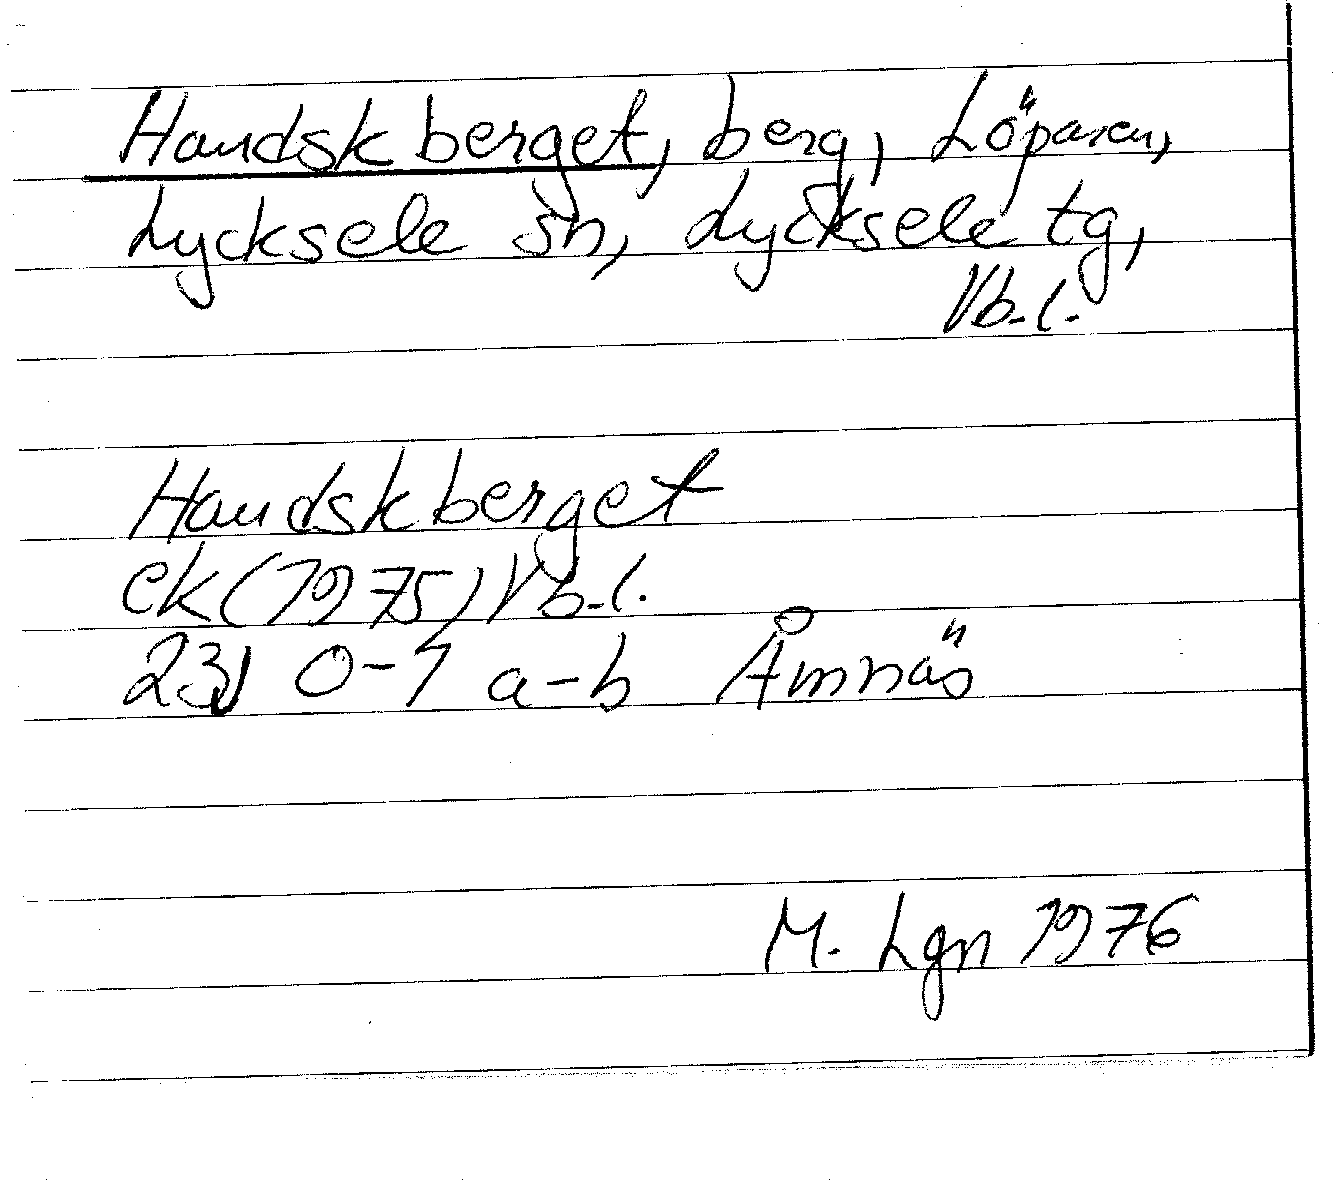 Handskberget, berg, Löparen,
Lycksele sn, Lycksele tg,
Vb.l.
Handskberget
ek (1975) Vb.l.
23J 0-1 a-b Åmnäs
M. Lgn 1976